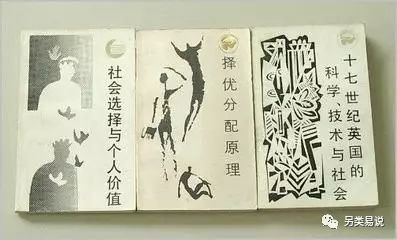 社会选择与个人价值
择优分配原理
十七世纪英国的
科学、技术与社会
另类易说